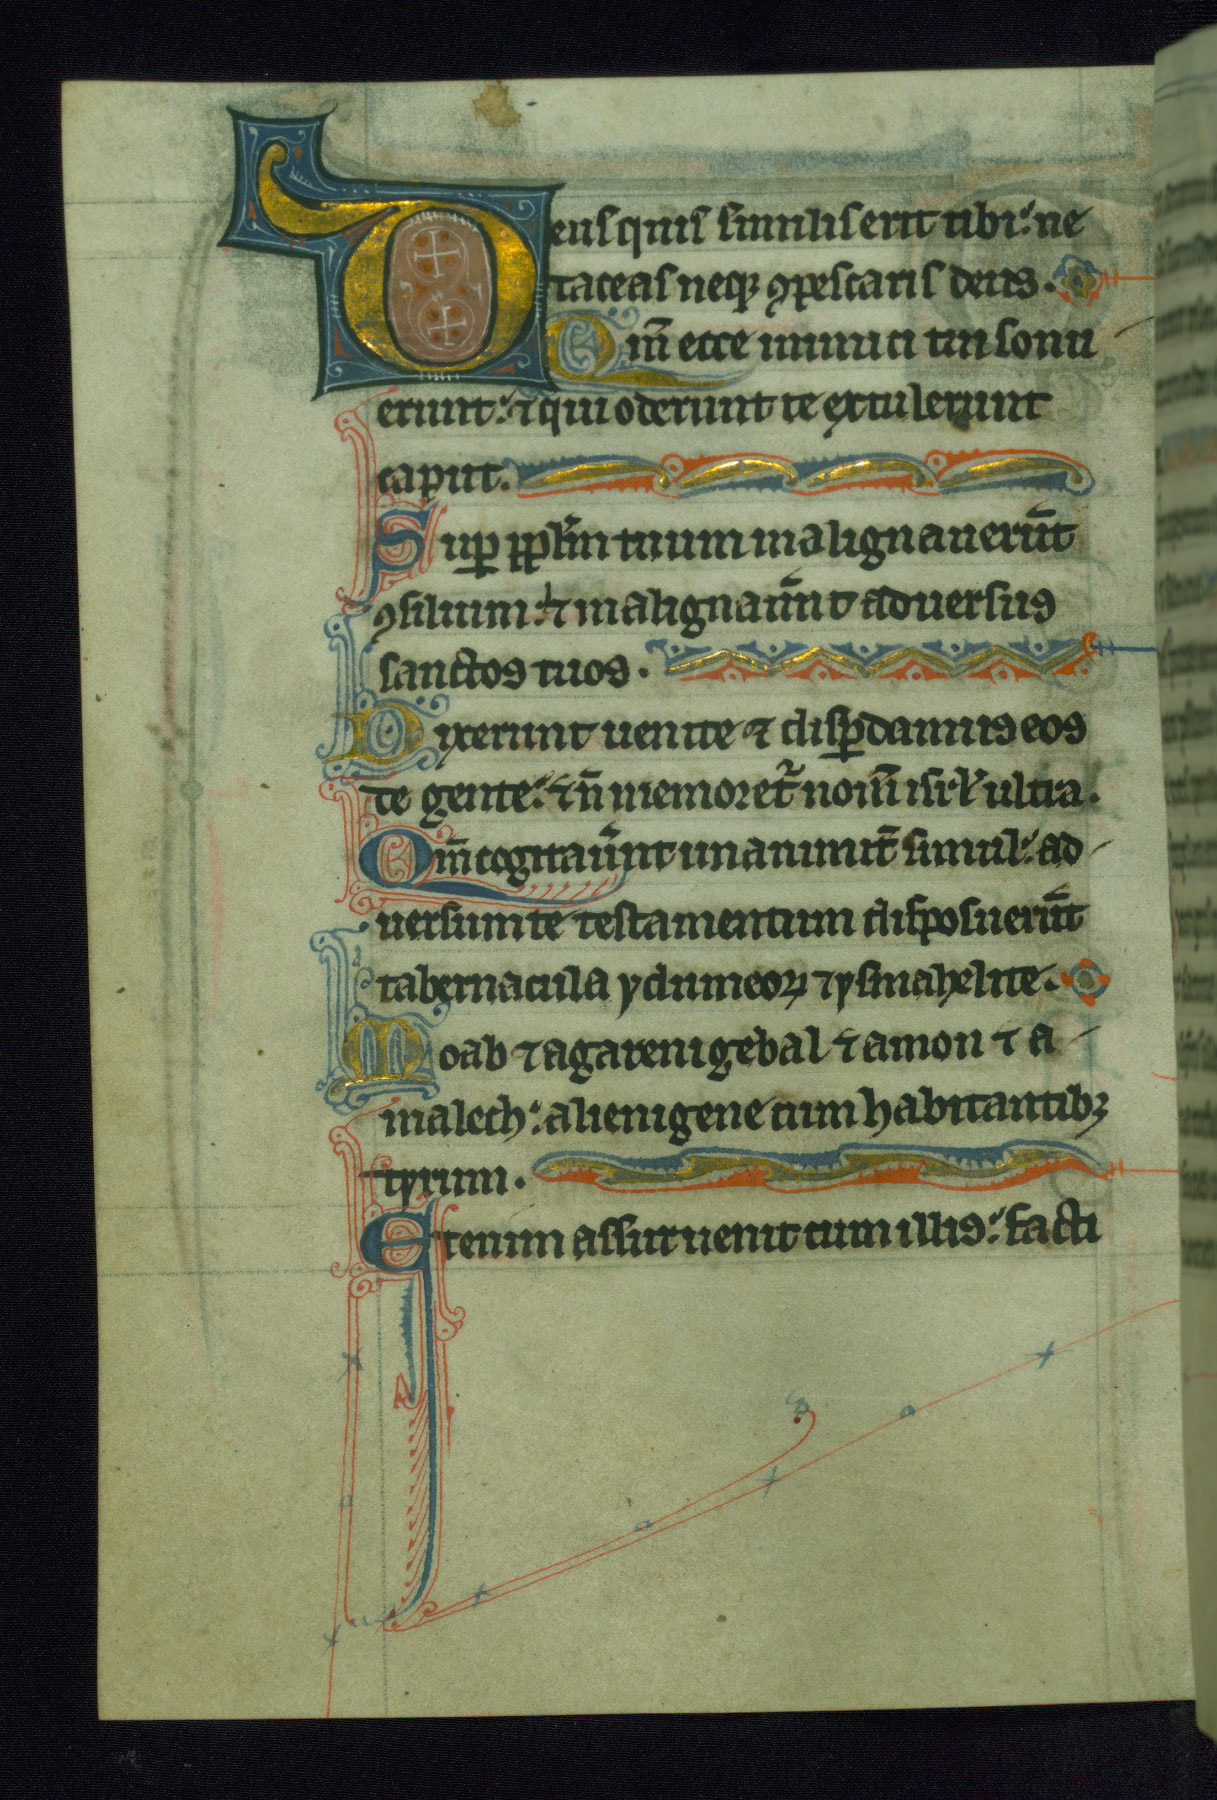 Deus quis similis erit tibi: ne
taceas neq; ꝯpescaris deus.
Qm̄ ecce inimici tui sonu
erunt: ⁊ qui oderunt te extulerunt
caput.
Sup̱ pp̱lm̄ tuum malignauerūt
ꝯsilium: ⁊ malignauer̄nt aduersus
sanctos tuos.
Dixerunt uenite ⁊ disp̱damus eos
de gente: ⁊ n̄ memoret᷑ nom̄ isrł ultra.
Qm̄ cogitauer̄nt unanimit᷑ simul: ad
uersum te testamentum disposuerūt
tabernacula ydumeoꝝ ⁊ ysmahelite.
Moab ⁊ agareni gebal ⁊ amon ⁊ a
malech: alienigene cum habitantibꝫ
tyrum.
Etenim assur uenit cum illis: facti